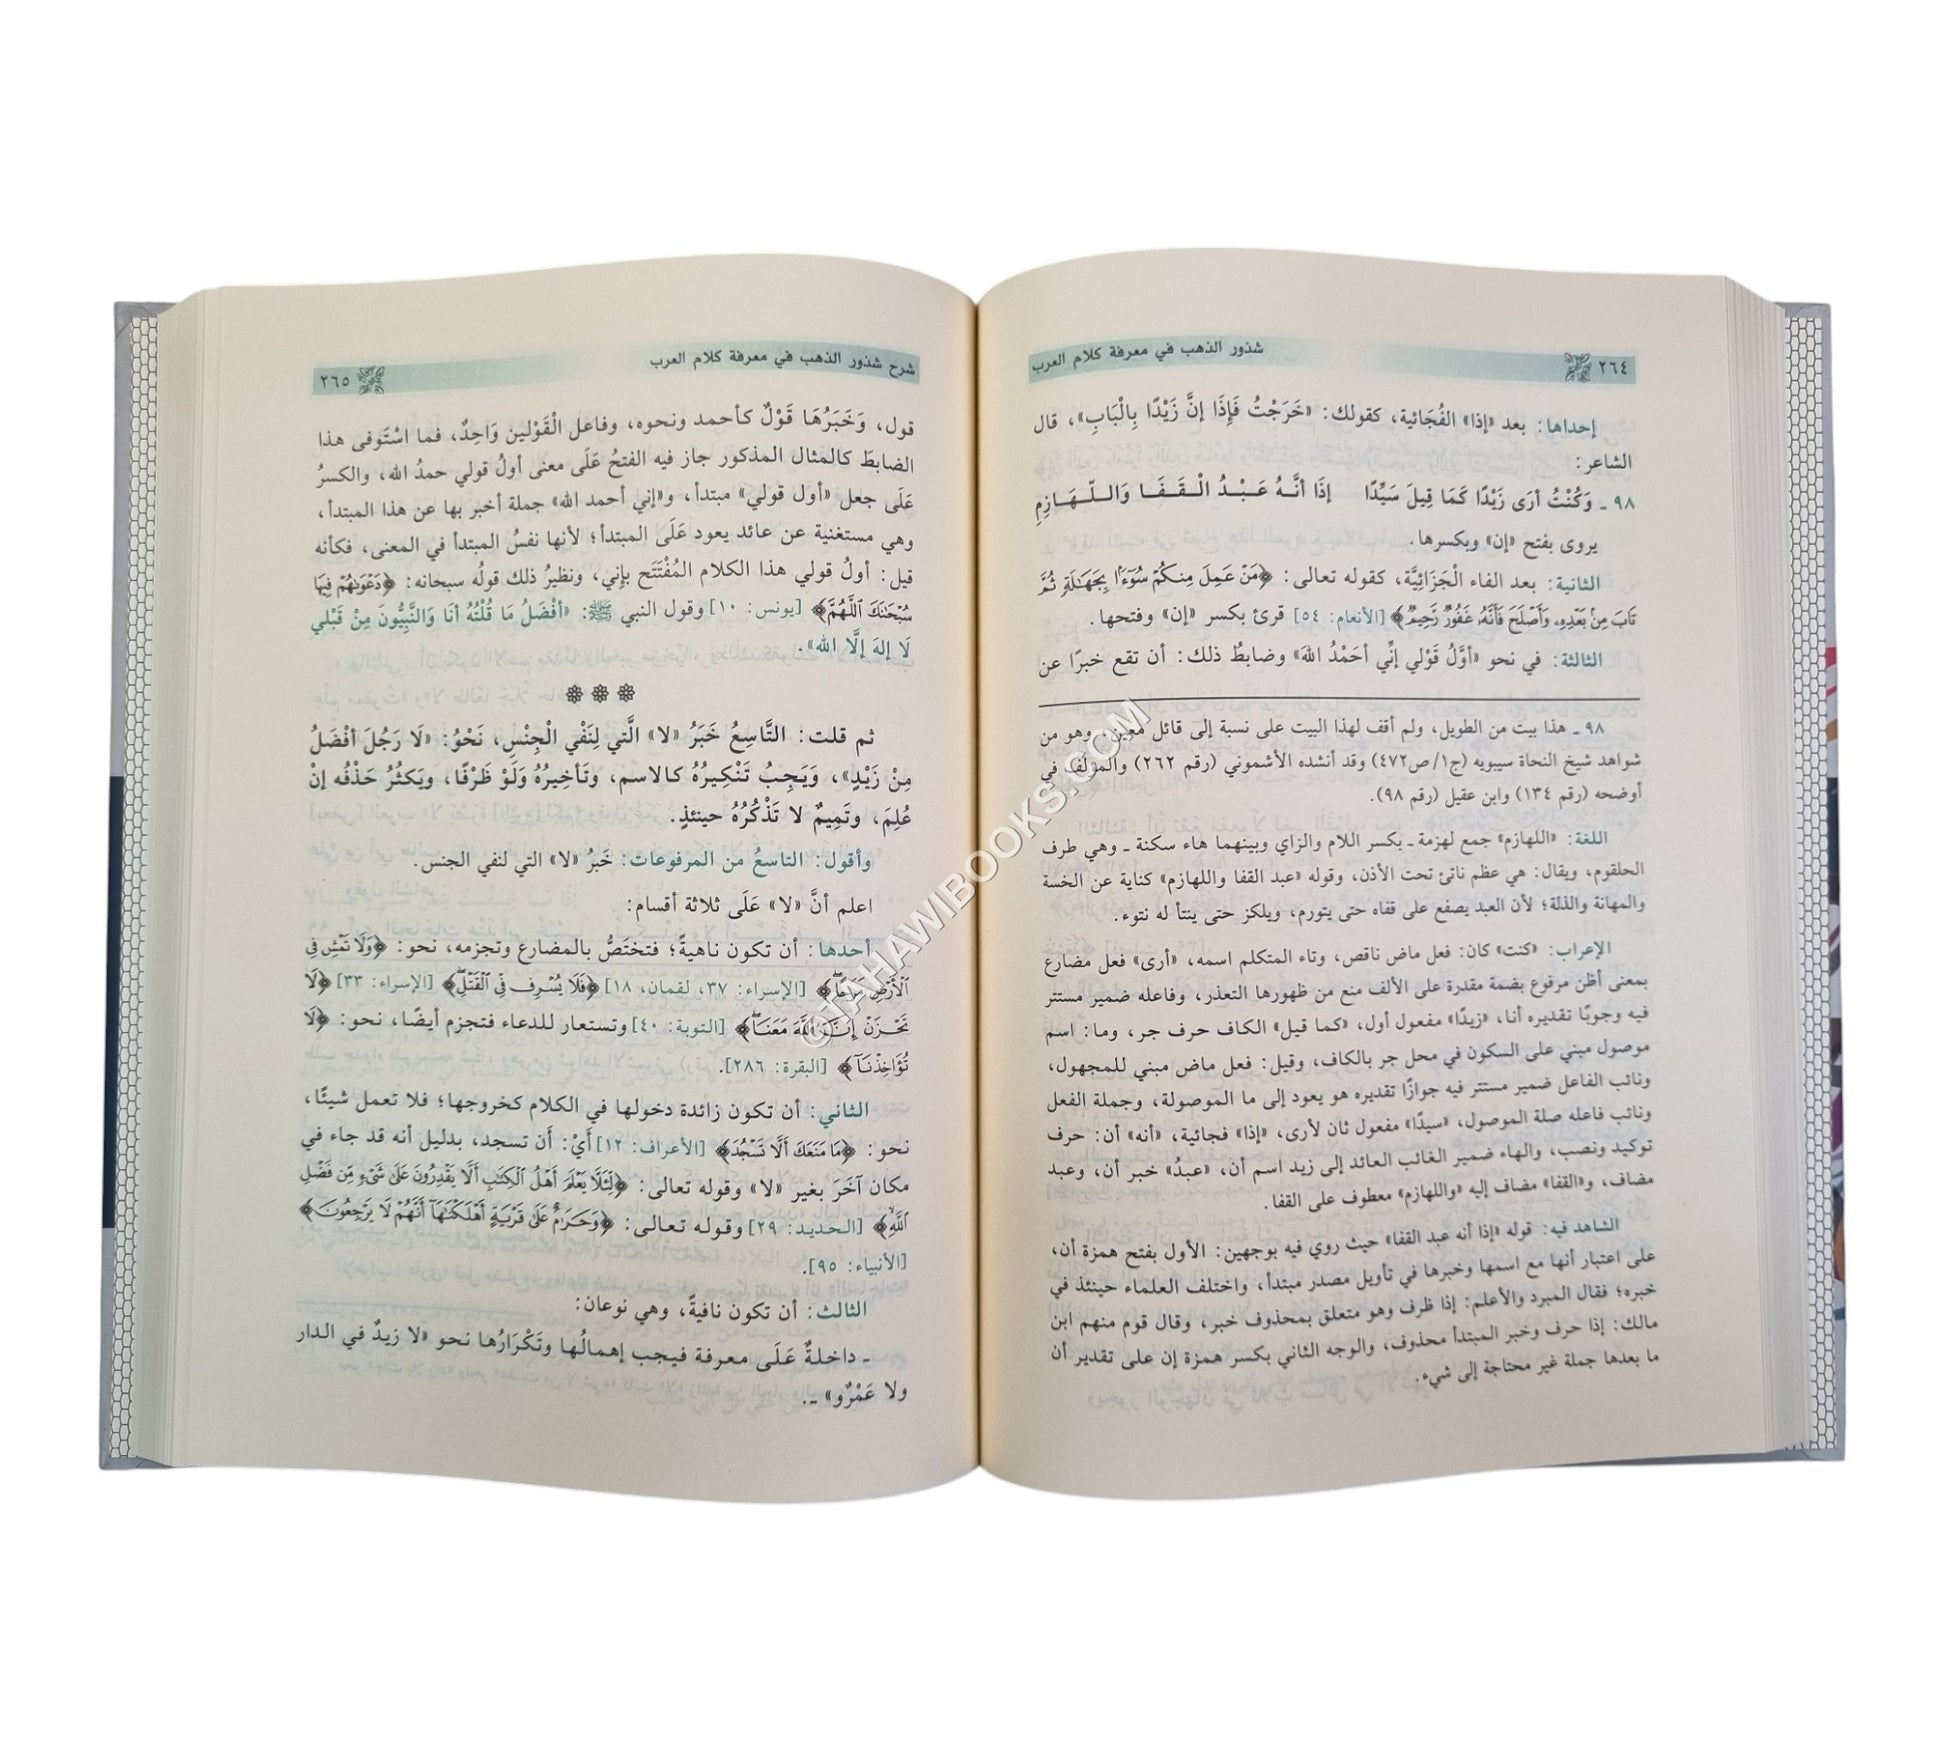 ٢٦٤ شذور الذهب في معرفة كلام العرب
إحداها: بعد «إذا» الفُجَائية، كقولك: «خَرَجْتُ فَإِذَا إنَّ زَيْدًا بِالْبَابِ»، قال
الشاعر:
٩٨ ـ وَكُنْتُ أرَى زَيْدًا كَمَا قِيلَ سَيِّدًا إذَا أنَّـهُ عَـبْـدُ الْـقَـفَـا وَالـلَّـهَـازِمِ
يروى بفتح «إن» وبكسرها.
الثانية: بعد الفاء الْجَزَائِيَّة، كقوله تعالى: ﴿مَنْ عَمِلَ مِنكُمْ سُوٓءًۢا بِجَهَٰلَةٍ ثُمَّ
تَابَ مِنۢ بَعْدِهِۦ وَأَصْلَحَ فَأَنَّهُۥ غَفُورٌ رَّحِيمٌ﴾ [الأنعام: ٥٤] قرئ بكسر «إن» وفتحها.
الثالثة: في نحو «أوَّلُ قَوْلي إنِّي أحَمْدُ اللهَ» وضابطُ ذلك: أن تقع خبرًا عن
٩٨ ـ هذا بيت من الطويل، ولم أقف لهذا البيت على نسبة إلى قائل معين، وهو من
شواهد شيخ النحاة سيبويه (ج١/ ص٤٧٢) وقد أنشده الأشموني (رقم ٢٦٢) والمؤلف في
أوضحه (رقم ١٣٤) وابن عقيل (رقم ٩٨).
اللغة: «اللهازم» جمع لهزمة ـ بكسر اللام والزاي وبينهما هاء سكنة ـ وهي طرف
الحلقوم، ويقال: هي عظم ناتئ تحت الأذن، وقوله «عبد القفا واللهازم» كناية عن الخسة
والمهانة والذلة؛ لأن العبد يصفع على قفاه حتى يتورم، ويلكز حتى ينتأ له نتوء.
الإعراب: «كنت» كان: فعل ماض ناقص، وتاء المتكلم اسمه، «أرى» فعل مضارع
بمعنى أظن مرفوع بضمة مقدرة على الألف منع من ظهورها التعذر، وفاعله ضمير مستتر
فيه وجوبًا تقديره أنا، «زيدًا» مفعول أول، «كما قيل» الكاف حرف جر، وما: اسم
موصول مبني على السكون في محل جر بالكاف، وقيل: فعل ماض مبني للمجهول،
ونائب الفاعل ضمير مستتر فيه جوازًا تقديره هو يعود إلى ما الموصولة، وجملة الفعل
ونائب فاعله صلة الموصول، «سيدًا» مفعول ثان لأرى، «إذا» فجائية، «أنه» أن: حرف
توكيد ونصب، والهاء ضمير الغائب العائد إلى زيد اسم أن، «عبدُ» خبر أن، وعبد
مضاف، و«القفا» مضاف إليه «واللهازم» معطوف على القفا.
الشاهد فيه: قوله «إذا أنه عبد القفا» حيث روي فيه بوجهين: الأول بفتح همزة أن،
على اعتبار أنها مع اسمها وخبرها في تأويل مصدر مبتدأ، واختلف العلماء حينئذ في
خبره؛ فقال المبرد والأعلم: إذا ظرف وهو متعلق بمحذوف خبر، وقال قوم منهم ابن
مالك: إذا حرف وخبر المبتدأ محذوف، والوجه الثاني بكسر همزة إن على تقدير أن
ما بعدها جملة غير محتاجة إلى شيء.
شرح شذور الذهب في معرفة كلام العرب ٢٦٥
قول، وَخَبَرُهَا قَوْلٌ كأحمد ونحوه، وفاعل الْقَوْلين وَاحِدٌ، فما اسْتَوفى هذا
الضابطَ كالمثال المذكور جاز فيه الفتحُ عَلَى معنى أولُ قولي حمدُ الله، والكسرُ
عَلَى جعل «أول قولي» مبتدأ، و«إني أحمد الله» جملة أخبر بها عن هذا المبتدأ،
وهي مستغنية عن عائد يعود عَلَى المبتدأ؛ لأنها نفسُ المبتدأ في المعنى، فكأنه
قيل: أولُ قولي هذا الكلام المُفْتَتَح بإني، ونظيرُ ذلك قولُه سبحانه: ﴿دَعْوَىٰهُمْ فِيهَا
سُبْحَٰنَكَ ٱللَّهُمَّ﴾ [يونس: ١٠] وقول النبي ﷺ: «أفْضَلُ مَا قُلْتُهُ أنَا وَالنَّبِيُّونَ مِنْ قَبْلي
لَا إلهَ إلَّا الله».
ثم قلت: التَّاسِعُ خَبَرُ «لا» الَّتي لِنَفْي الْجِنْسِ، نَحْوُ: «لَا رَجُلَ أفْضَلُ
مِنْ زَيْدٍ»، وَيَجِبُ تَنْكِيرُهُ كالاسم، وتَأخِيرُهُ وَلَوْ ظَرْفًا، ويَكثُرُ حَذْفُه إنْ
عُلِمَ، وتَمِيمٌ لا تَذْكُرُهُ حينئذٍ.
وأقول: التاسعُ من المرفوعات: خَبرُ «لا» التي لنفي الجنس.
اعلم أنَّ «لا» عَلَى ثلاثة أقسام:
أحدها: أن تكون ناهيةً؛ فتختَصُّ بالمضارع وتجزمه، نحو: ﴿وَلَا تَمْشِ فِى
ٱلْأَرْضِ مَرَحًا﴾ [الإسراء: ٣٧، لقمان، ١٨] ﴿فَلَا يُسْرِف فِّى ٱلْقَتْلِ﴾ [الإسراء: ٣٣] ﴿لَا
تَحْزَنْ إِنَّ ٱللَّهَ مَعَنَا﴾ [التوبة: ٤٠] وتستعار للدعاء فتجزم أيضًا، نحو: ﴿لَا
تُؤَاخِذْنَآ﴾ [البقرة: ٢٨٦].
الثاني: أن تكون زائدة دخولها في الكلام كخروجها؛ فلا تعمل شيئًا،
نحو: ﴿مَا مَنَعَكَ أَلَّا تَسْجُدَ﴾ [الأعراف: ١٢] أيْ: أن تسجد، بدليل أنه قد جاء في
مكان آخَرَ بغير «لا» وقوله تعالى: ﴿لِّئَلَّا يَعْلَمَ أَهْلُ ٱلْكِتَٰبِ أَلَّا يَقْدِرُونَ عَلَىٰ شَىْءٍ مِّن فَضْلِ
ٱللَّهِ﴾ [الحديد: ٢٩] وقوله تعالى: ﴿وَحَرَٰمٌ عَلَىٰ قَرْيَةٍ أَهْلَكْنَٰهَآ أَنَّهُمْ لَا يَرْجِعُونَ﴾
[الأنبياء: ٩٥].
الثالث: أن تكون نافيةً، وهي نوعان:
ـ داخلةٌ عَلَى معرفة فيجب إهمالُها وتَكْرَارُها نحو «لا زيدٌ في الدار
ولا عَمْرٌو» ـ.
©TAHAWIBOOKS.COM